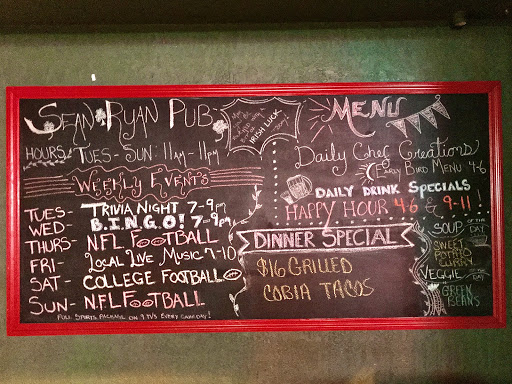 Sean Ryan Pub
HOURS: TUES- SUN: 11AM- 11PM
Weekly Events
TUES- TRIVIA NIGHT 7-9PM
WED- B.I.N.G.O! 7-9PM
THURS- NFL FOOTBALL
FRI- Local Live Music 7-10
SAT- COLLEGE FOOTBALL
SUN- NFL FOOTBALL
FULL SPORTS PACKAGE ON 9 TVS EVERY GAME DAY!
IRISH LUCK
MENU
Daily Chef Creations
EARLY BIRD MENU 4-6
DAILY DRINK SPECIALS
HAPPY HOUR 4-6 & 9-11!
DINNER SPECIAL
$16 GRILLED
COBIA TACOS
SOUP OF THE DAY
SWEET
POTATO
CURRY
VEGGIE OF THE DAY
GREEN
BEANS